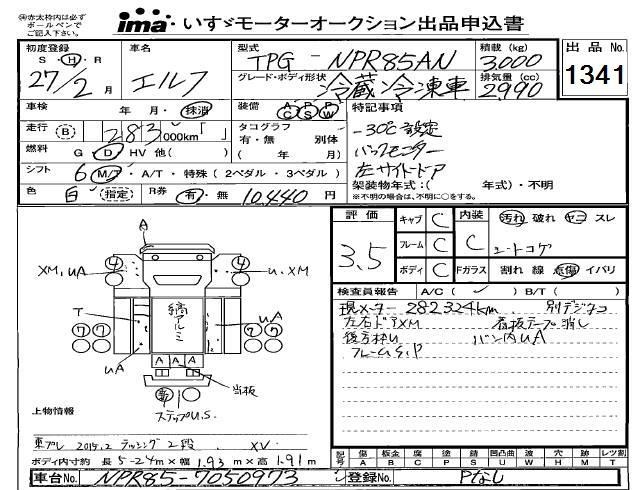 ㊟赤太枠内は必ず
ボールペンで
ご記入下さい。
ima いすゞモーターオークション出品申込書
初度登録 S H R 27/2 月
車名 エルフ
型式 TPG - NPR85AN
グレード・ボディ形状 冷蔵冷凍車
積載 (kg) 3,000
排気量 (cc) 2,990
出品 No. 1341
車検 年 月・抹消
装備 A/C P/S P/W
特記事項
-30℃設定
バックモニター
左サイドドア
走行 (B) 283,000km「 」
タコグラフ 有・無 別体 ( 年 月)
燃料 G・D・HV 他( )
シフト 6 M/T・A/T・特殊(2ペダル・3ペダル)
架装物年式:( 年式)・不明
※不明の場合は、不明に○をする。
色 白 (指定) R券 有・無 10,440 円
評価 3.5
キャブ C 内装 C 汚れ 破れ ヤニ スレ
フレーム C
ボディ C Fガラス 割れ 線 点傷 イバリ
検査員報告 A/C( ) B/T( )
現メーター 282,324km 別デジタコ
左右ドTXM 看板テープ消し
後方枠U バン内UA
フレームS,P
A
④ ④
XM,UA U,XM
T 縞アルミ UA
⑦⑦ ⑦⑦
UA
A A A 当板
ステップU.S.
上物情報
東プレ 2015.2 ラッシング2段 XV
ボディ内寸約 長 5-24m×幅 1.93 m×高 1.91 m
記号 傷 A 板金 B 腐 C 塗 P 塗 S 凹凸曲 U 波 W 穴 H 跡 M レツ割 T
車台No. NPR85-7050973
登録No. Pなし